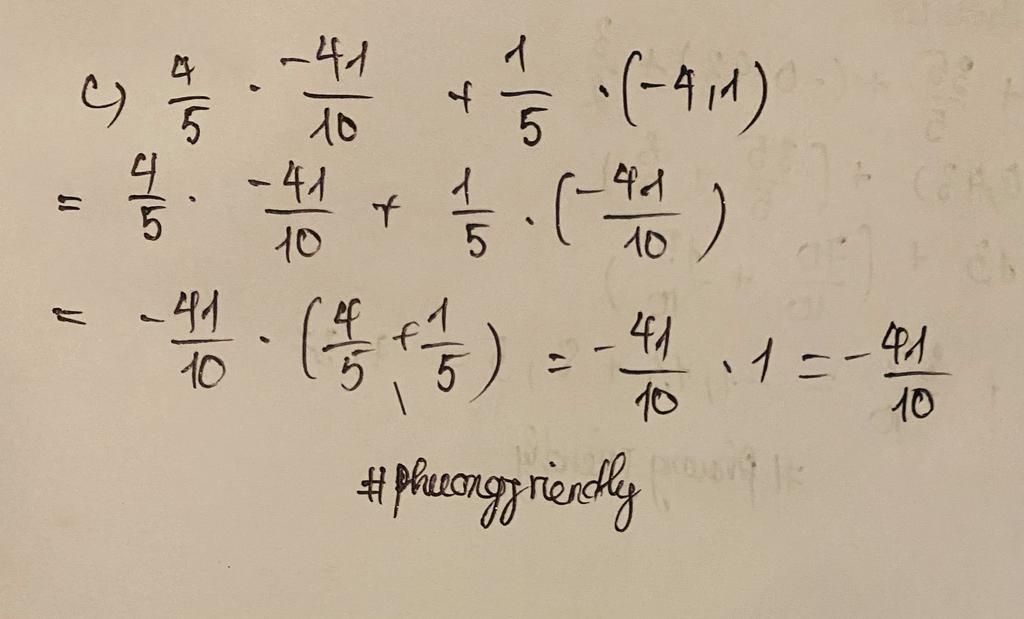 c) 4/5 · -41/10 + 1/5 · (-4,1)
= 4/5 · -41/10 + 1/5 · (-41/10)
= -41/10 · (4/5 + 1/5) = -41/10 · 1 = -41/10
#phuongfriendly